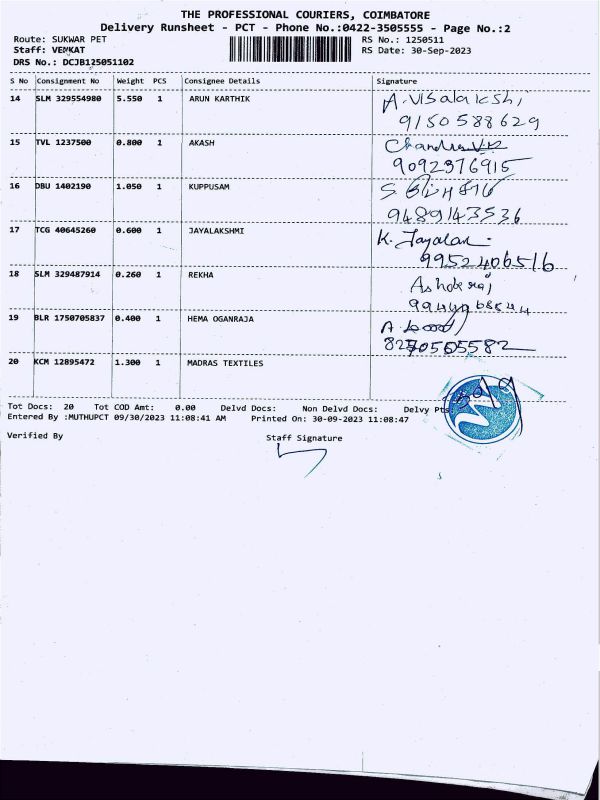 THE PROFESSIONAL COURIERS, COIMBATORE
Delivery Runsheet - PCT - Phone No.:0422-3505555 - Page No.:2
Route: SUKWAR PET RS No.: 1250511
Staff: VENKAT RS Date: 30-Sep-2023
DRS No.: DCJB125051102
S No Consignment No Weight PCS Consignee Details Signature
14 SLM 329554980 5.550 1 ARUN KARTHIK A.Visalakshi
9150588629
15 TVL 1237500 0.800 1 AKASH Chandra
9092376915
16 DBU 1402190 1.050 1 KUPPUSAM S.
9489143536
17 TCG 40645260 0.600 1 JAYALAKSHMI K. Jayalak
9952406516
18 SLM 329487914 0.260 1 REKHA Ashokraj
19 BLR 1750705837 0.400 1 HEMA OGANRAJA A.
20 KCM 12895472 1.300 1 MADRAS TEXTILES
Tot Docs: 20 Tot COD Amt: 0.00 Delvd Docs: Non Delvd Docs: Delvy Pts:
Entered By :MUTHUPCT 09/30/2023 11:08:41 AM Printed On: 30-09-2023 11:08:47
Verified By Staff Signature